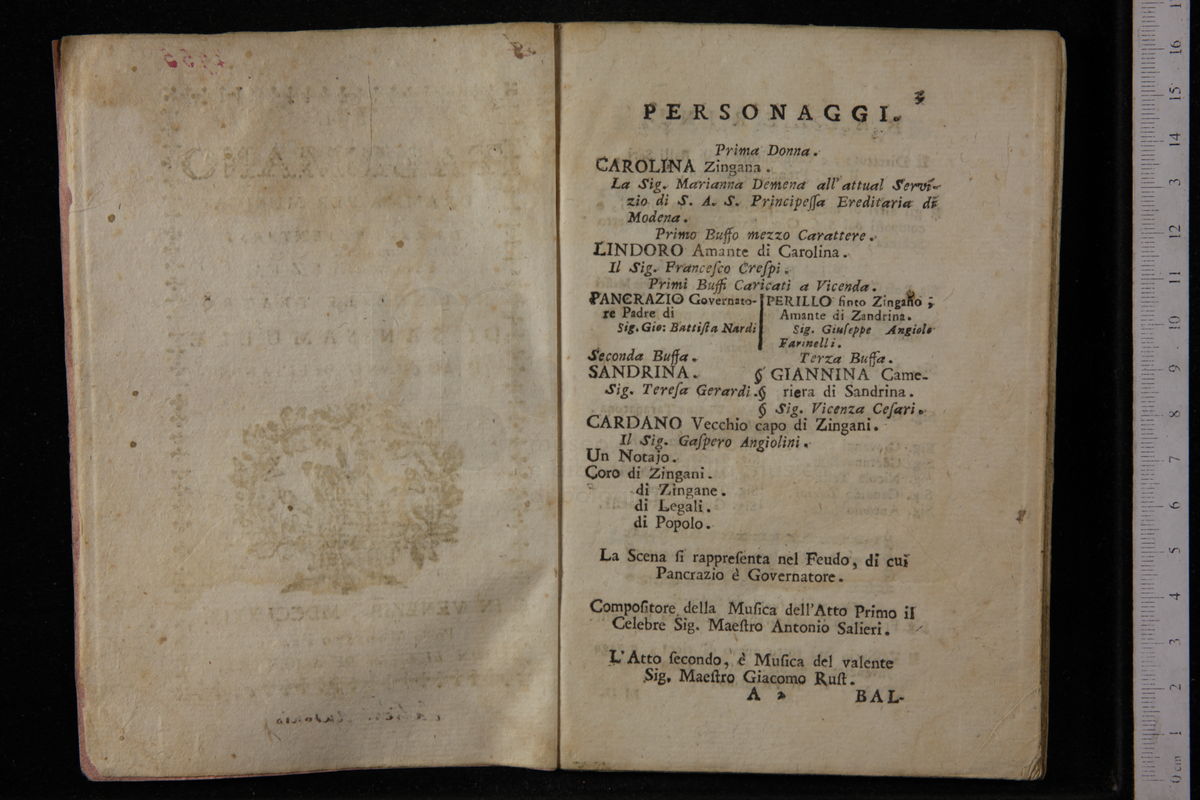 3
PERSONAGGI.
Prima Donna.
CAROLINA Zingana.
La Sig. Marianna Demena all'attual Servi-
zio di S. A. S. Principeſſa Ereditaria di
Modena.
Primo Buffo mezzo Carattere.
LINDORO Amante di Carolina.
Il Sig. Franceſco Creſpi.
Primi Buffi Caricati a Vicenda.
PANCRAZIO Governato-
re Padre di
Sig. Gio: Battiſta Nardi
PERILLO finto Zingano;
Amante di Zandrina.
Sig. Giuſeppe Angiolo
Farinelli.
Seconda Buffa.
SANDRINA.
Sig. Tereſa Gerardi.
Terza Buffa.
§ GIANNINA Came-
§ riera di Sandrina.
§ Sig. Vicenza Ceſari.
CARDANO Vecchio capo di Zingani.
Il Sig. Gaſpero Angiolini.
Un Notajo.
Coro di Zingani.
di Zingane.
di Legali.
di Popolo.
La Scena ſi rappreſenta nel Feudo, di cui
Pancrazio è Governatore.
Compoſitore della Muſica dell'Atto Primo il
Celebre Sig. Maeſtro Antonio Salieri.
L'Atto ſecondo, è Muſica del valente
Sig. Maeſtro Giacomo Ruſt.
A 2 BAL-
0 cm 1 2 3 4 5 6 7 8 9 10 11 12 13 14 15 16